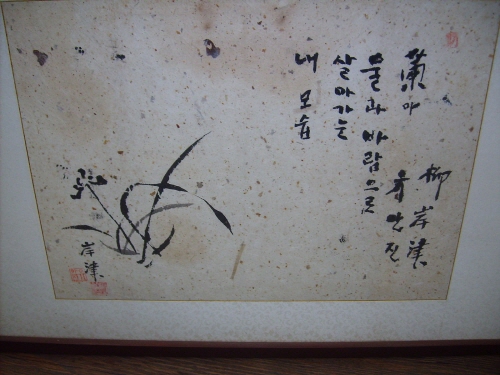 蘭아
柳岸津
유안진
물과 바람으로
살아가는
내 모습
岸津